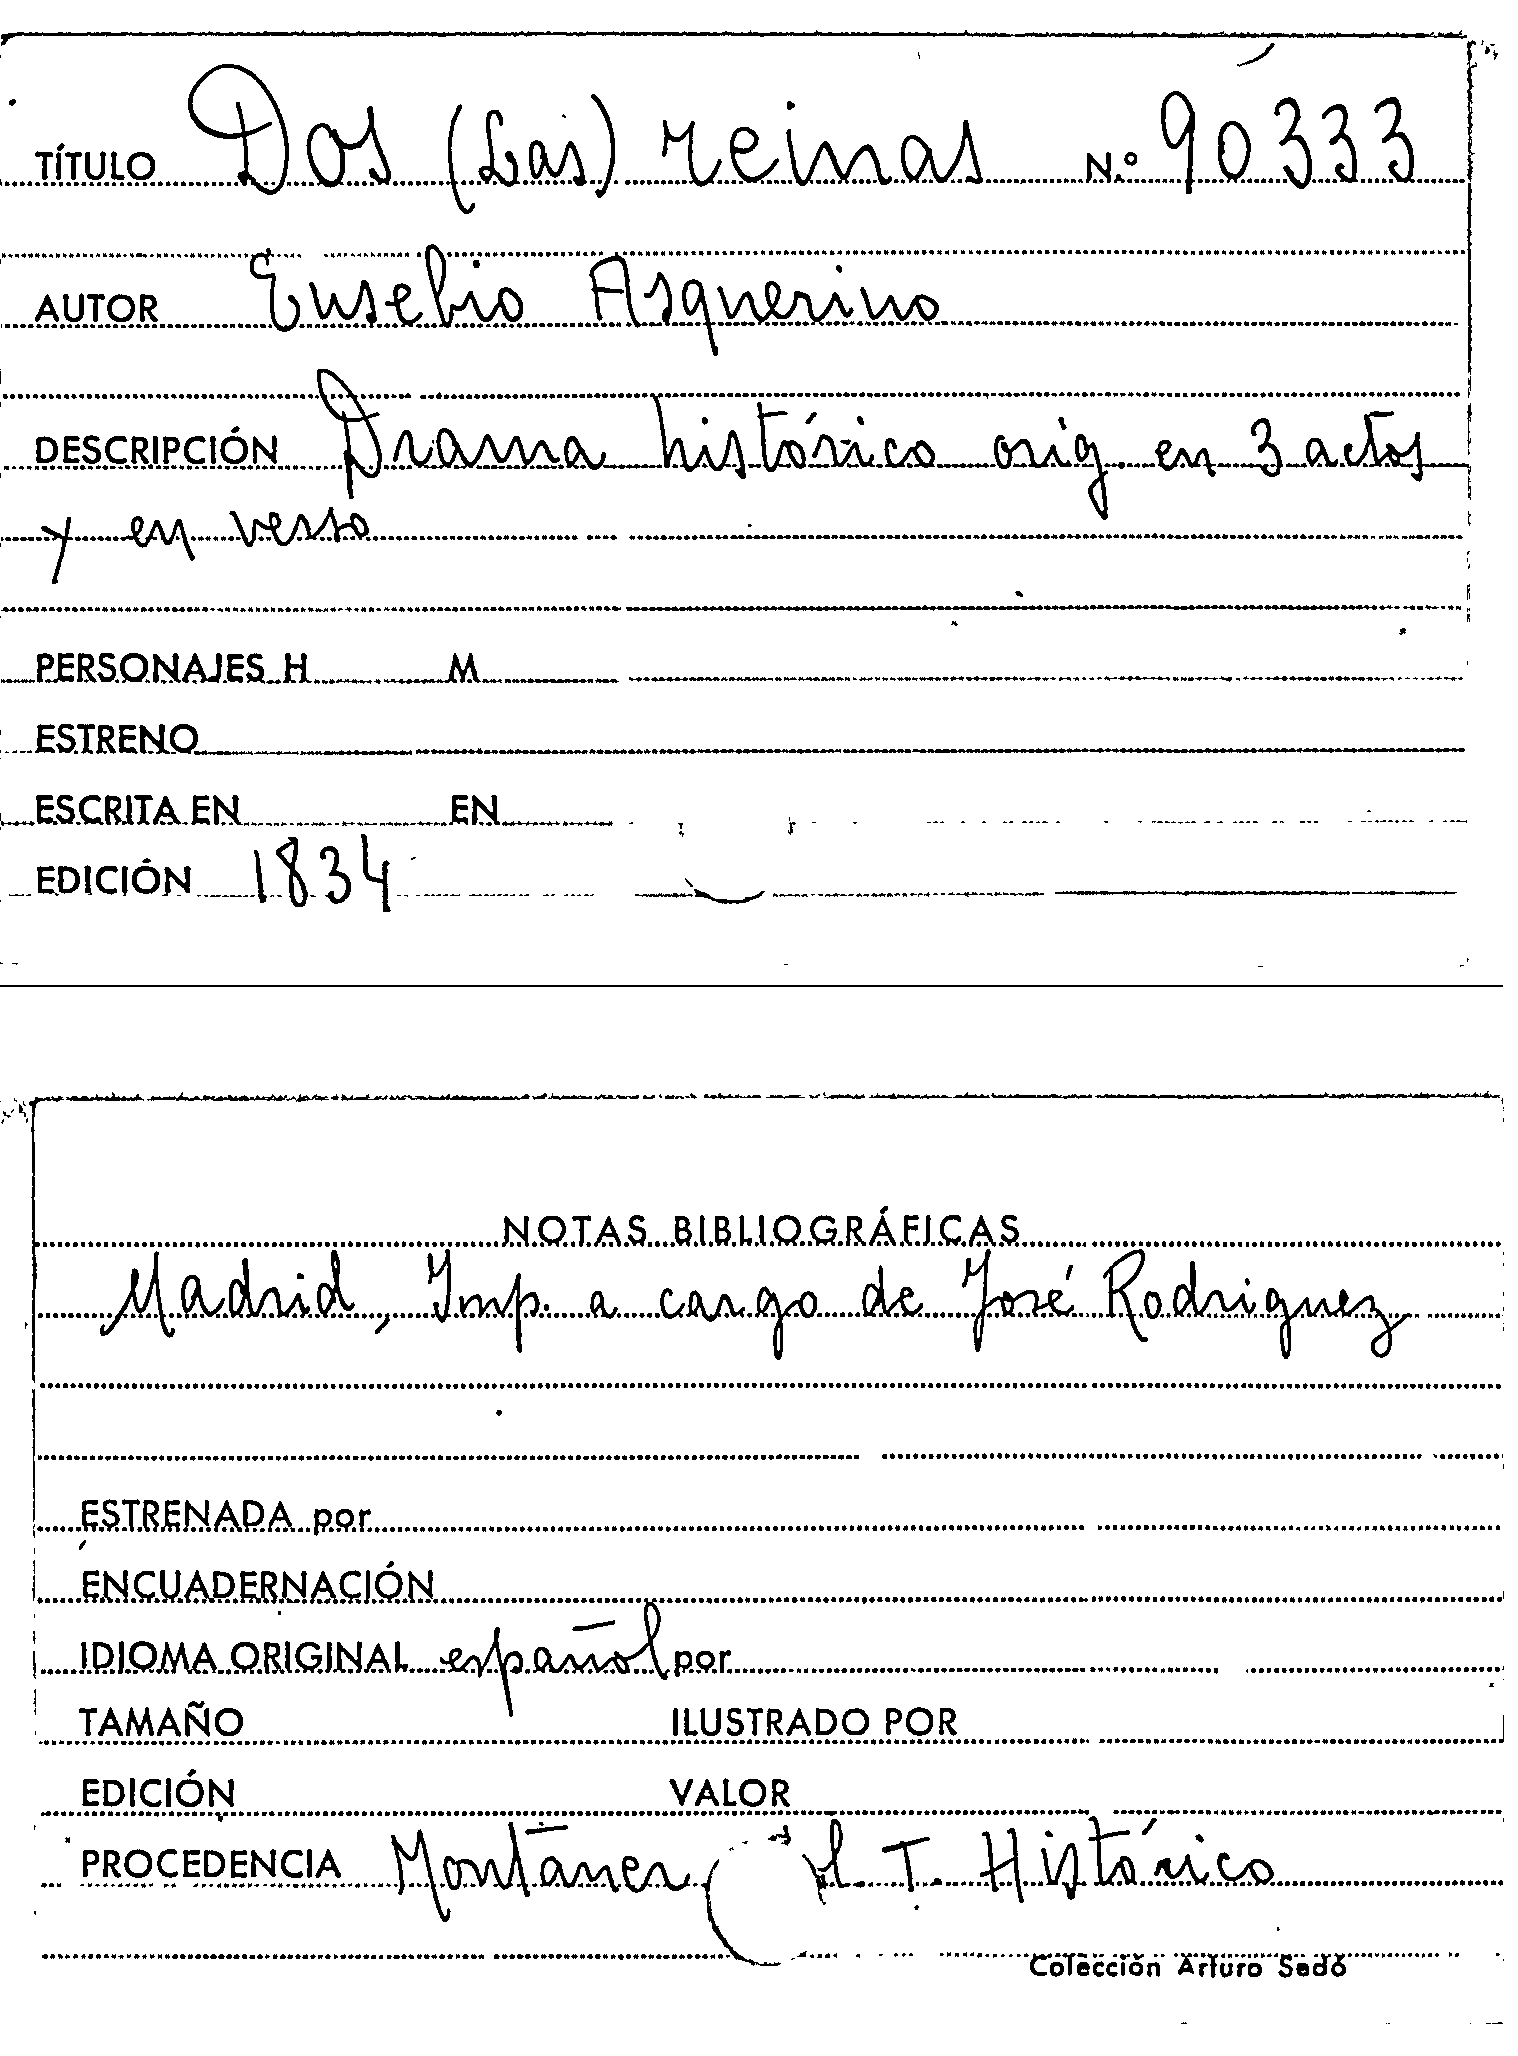 TÍTULO Dos (Las) reinas N.º 90333
AUTOR Eusebio Asquerino
DESCRIPCIÓN Drama histórico orig. en 3 actos
y en verso
PERSONAJES H M
ESTRENO
ESCRITA EN EN
EDICIÓN 1834
NOTAS BIBLIOGRÁFICAS
Madrid, Imp. a cargo de José Rodriguez
ESTRENADA por
ENCUADERNACIÓN
IDIOMA ORIGINAL español por
TAMAÑO ILUSTRADO POR
EDICIÓN VALOR
PROCEDENCIA Montaner T. Histórico
Colección Arturo Sedó